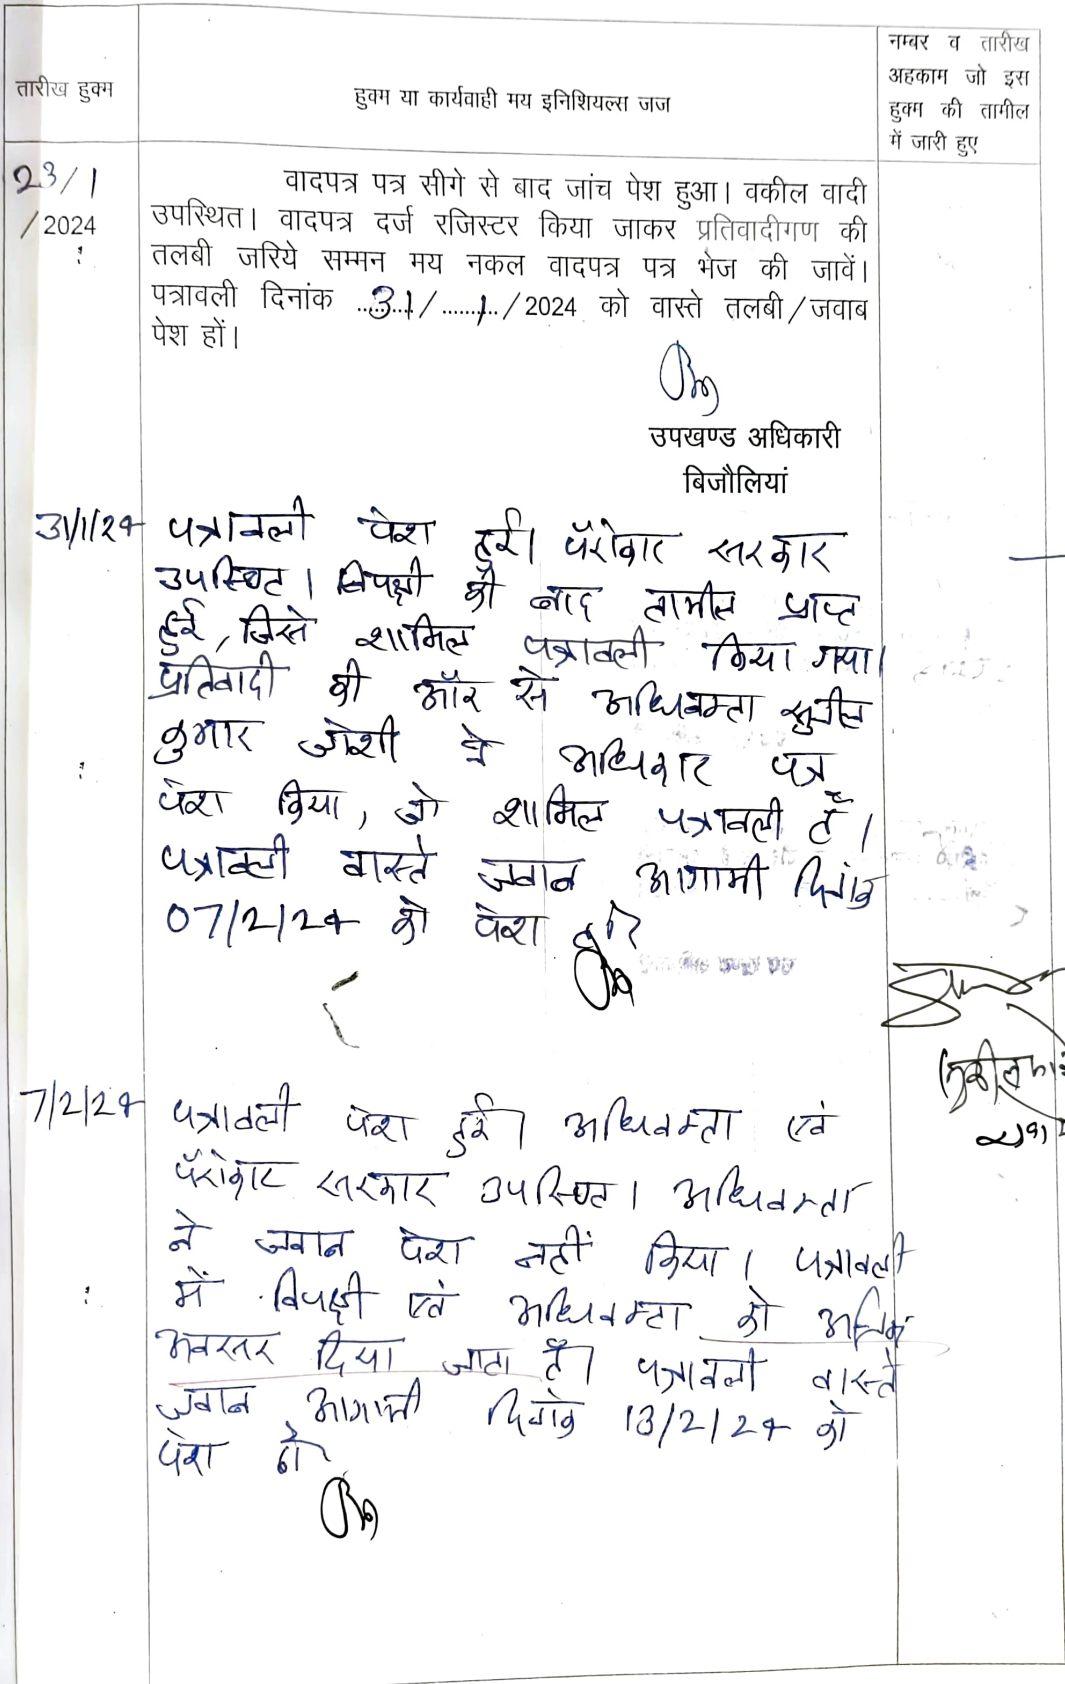 तारीख हुक्म
हुक्म या कार्यवाही मय इनिशियल्स जज
नम्बर व तारीख
अहकाम जो इस
हुक्म की तामील
में जारी हुए
23/1
/2024
वादपत्र पत्र सीगे से बाद जांच पेश हुआ। वकील वादी
उपस्थित। वादपत्र दर्ज रजिस्टर किया जाकर प्रतिवादीगण की
तलबी जरिये सम्मन मय नकल वादपत्र पत्र भेज की जावें।
पत्रावली दिनांक ..31../......1../2024 को वास्ते तलबी/जवाब
पेश हों।
उपखण्ड अधिकारी
बिजौलियां
31/1/24 पत्रावली पेश हुई। पॅरोकार सरकार
उपस्थित। विपक्षी की बाद तामील प्राप्त
हुई, जिसे शामिल पत्रावली किया गया।
प्रतिवादी की ऑर से अधिवक्ता सुनील
कुमार जोशी ने अधिकार पत्र
पेश किया, जो शामिल पत्रावली हैं।
पत्रावली वास्ते जवाब आगामी दिनांक
07/2/24 को पेश
7/2/24 पत्रावली पेश हुई। अधिवक्ता एवं
पॅरोकार सरकार उपस्थित। अधिवक्ता
ने जवाब पेश नहीं किया। पत्रावली
में विपक्षी एवं अधिवक्ता को अन्तिम
अवसर दिया जाता हैं। पत्रावली वास्ते
जवाब आगामी दिनांक 13/2/24 को
पेश हो